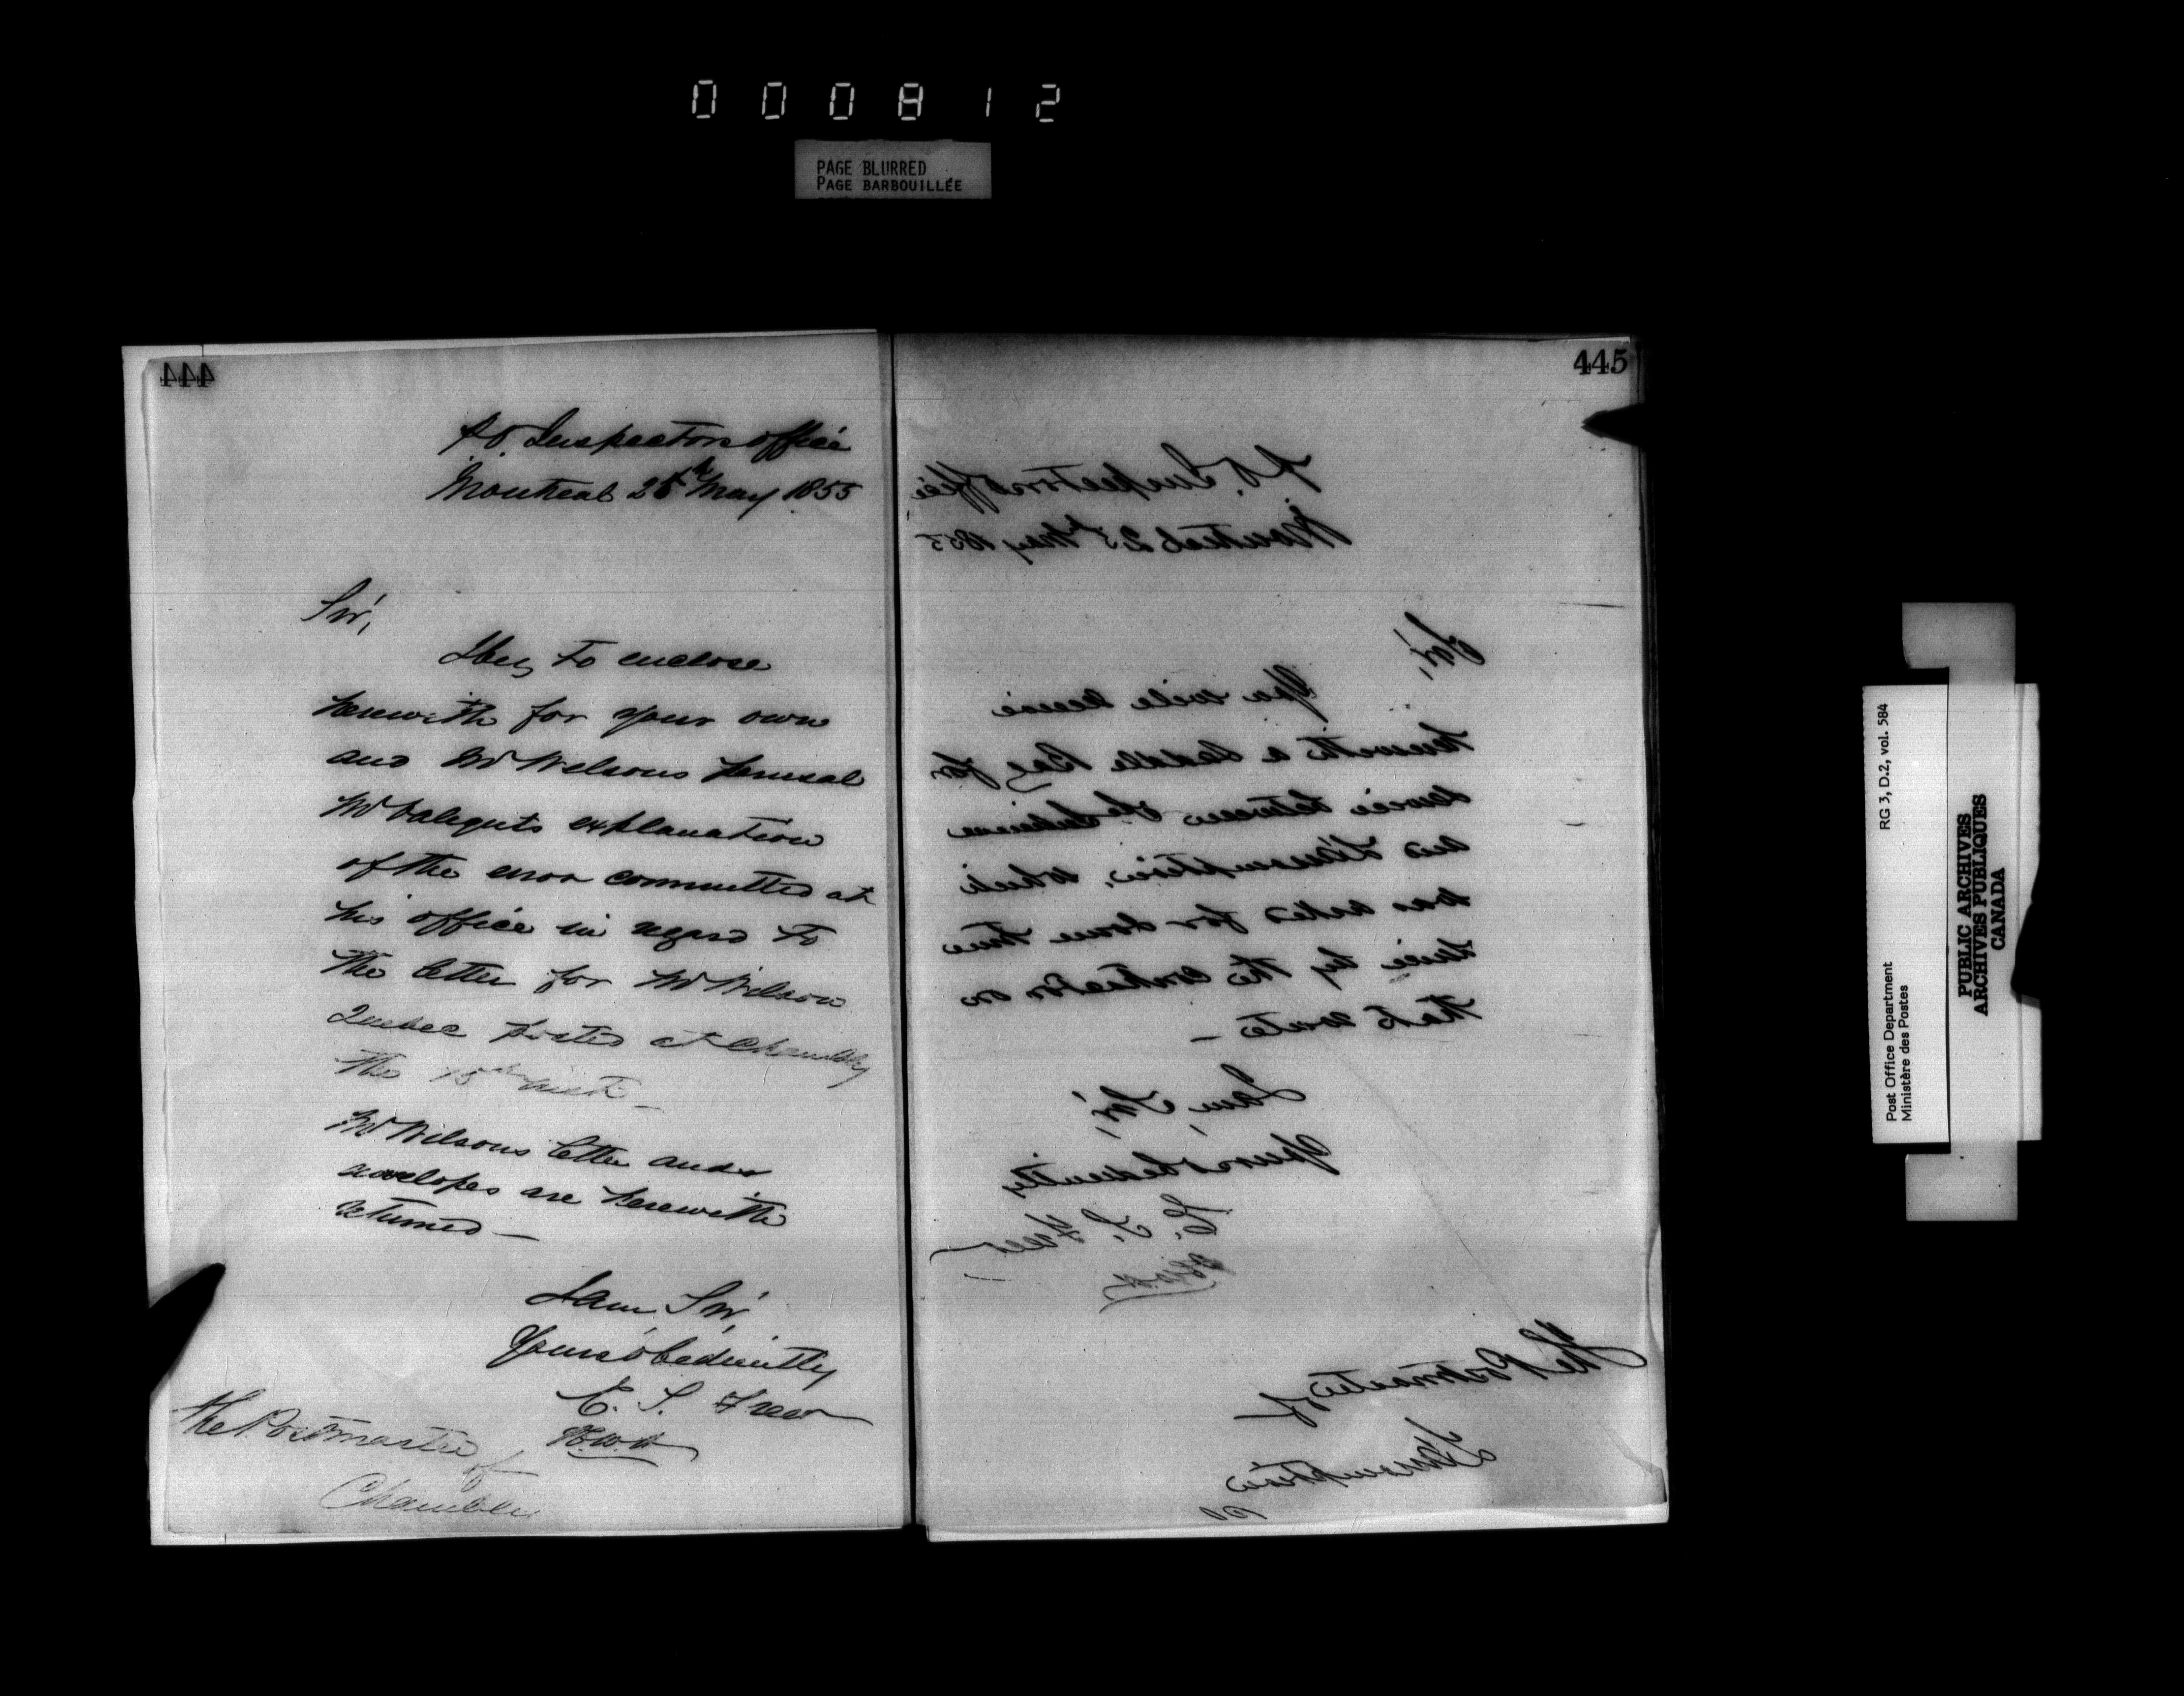 000812
PAGE BLURRED
PAGE BARBOUILLÉE
444
P.O. Inspectors Office
Montreal 25th May 1855
Sir,
I beg to enclose
herewith for your own
and Mr Wilsons perusal
Mr explanation
of the error committed at
his office in regard to
the letter for Mr Wilson
Quebec posted at Chambly
the 15th
Mr Wilsons letter and
envelopes are herewith
returned —
I am, Sir,
Yours obediently
E. S. Freer
The Postmaster
of
Chambly
445
P.O. Inspectors Office
Montreal 25th May 1855
Sir,
You will receive
herewith a Saddle Bag for
service between
and L'Assomption, which
was asked for some time
since by the contractor on
that route —
I am, Sir,
Yours obediently
E. S. Freer
The Postmaster
of
L'Assomption
RG 3, D.2, vol. 584
Post Office Department
Ministère des Postes
PUBLIC ARCHIVES
ARCHIVES PUBLIQUES
CANADA